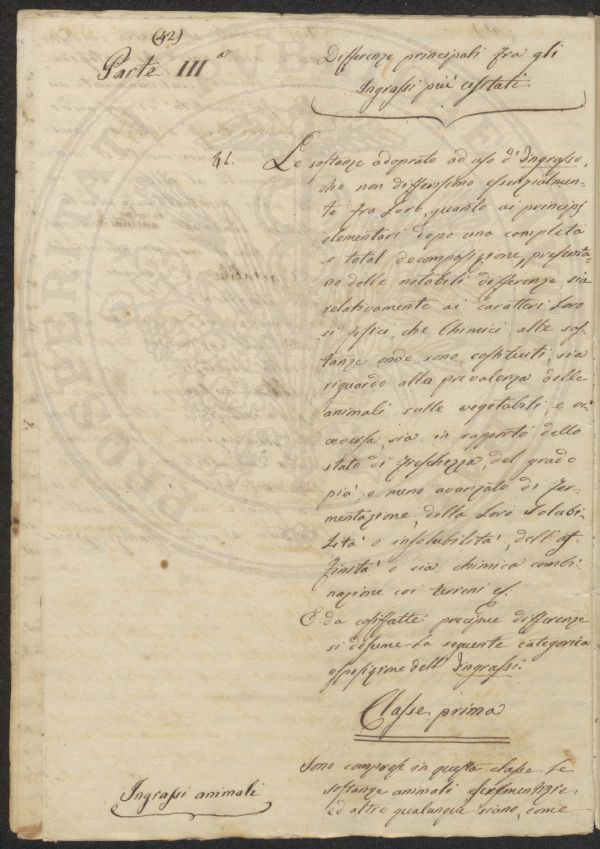 (42)
Parte III.ª
Differenze principali fra gli
Ingrassi più usitati.
41. Le sostanze adoprate ad uso d'Ingrasso,
che non differiscono essenzialmen-
te fra loro, quanto ai principj
elementari dopo una completa
e total decomposizione, presenta-
no delle notabili differenze, sia
relativamente ai caratteri loro
sì fisici, che Chimici alle sos-
tanze onde sono costituiti, sia
riguardo alla prevalenza delle
animali sulle vegetabili, e vi-
ceversa, sia in rapporto dello
stato di freschezza, del grado
più, o meno avanzato di fer-
mentazione, della loro solubi-
lità o insolubilità, dell'af-
finità o sia chimica combi-
nazione coi terreni
E da cosiffatte precipue differenze
si desume la seguente categorica
esposizione dell'Ingrassi.
Classe prima
Sono comprese in questa classe le
Ingrassi animali
sostanze animali escrementizie,
ed altre qualunque siano, come